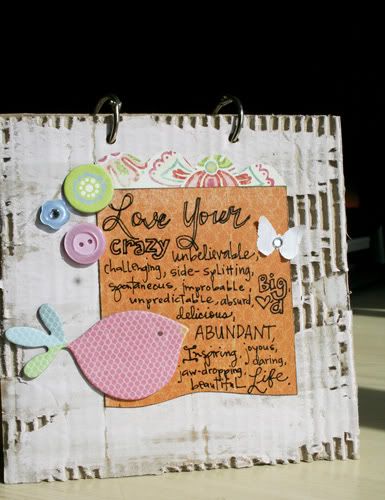 Love Your
crazy unbelievable,
challenging, side-splitting,
spontaneous, improbable, Big
unpredictable, absurd,
delicious,
ABUNDANT,
Inspiring, joyous,
jaw-dropping, daring,
beautiful Life.